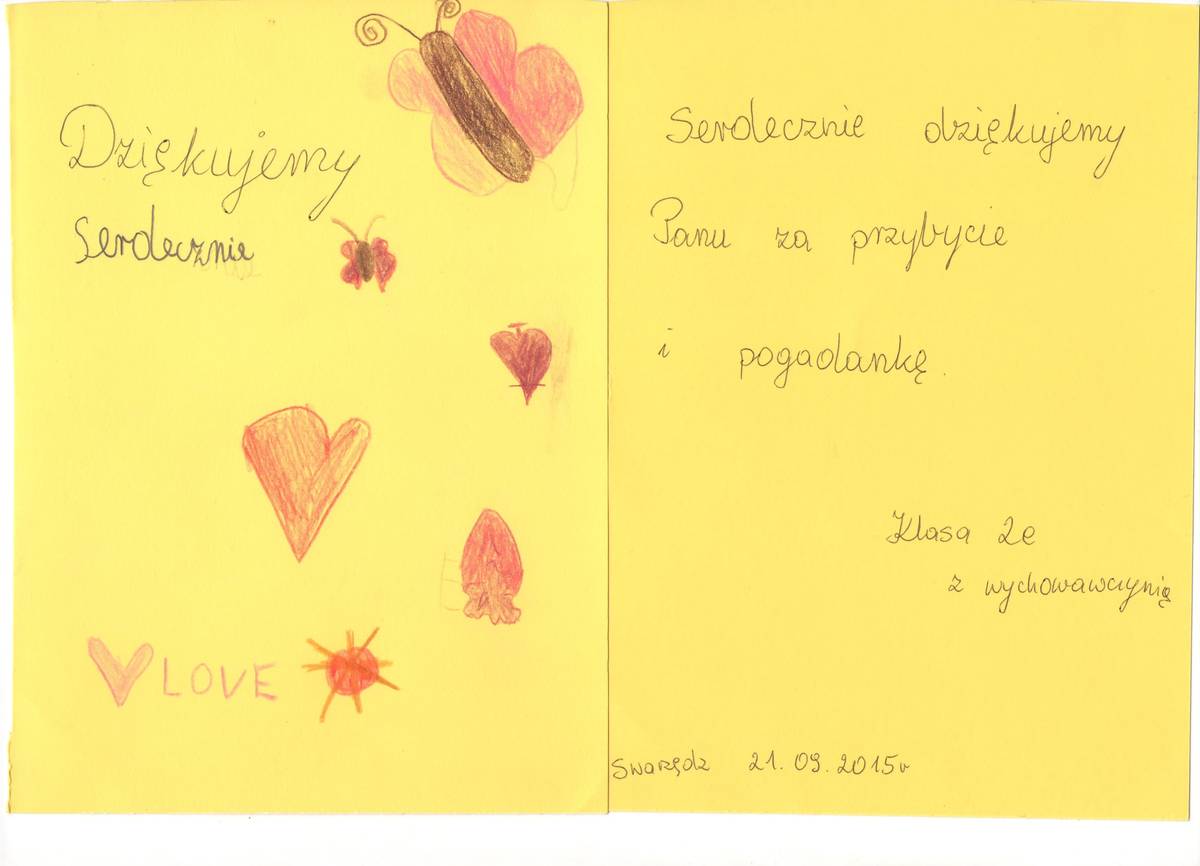 Dziękujemy
serdecznie
LOVE
Serdecznie dziękujemy
Panu za przybycie
i pogadankę.
Klasa 2e
z wychowawczynią
Swarzędz 21.09.2015r